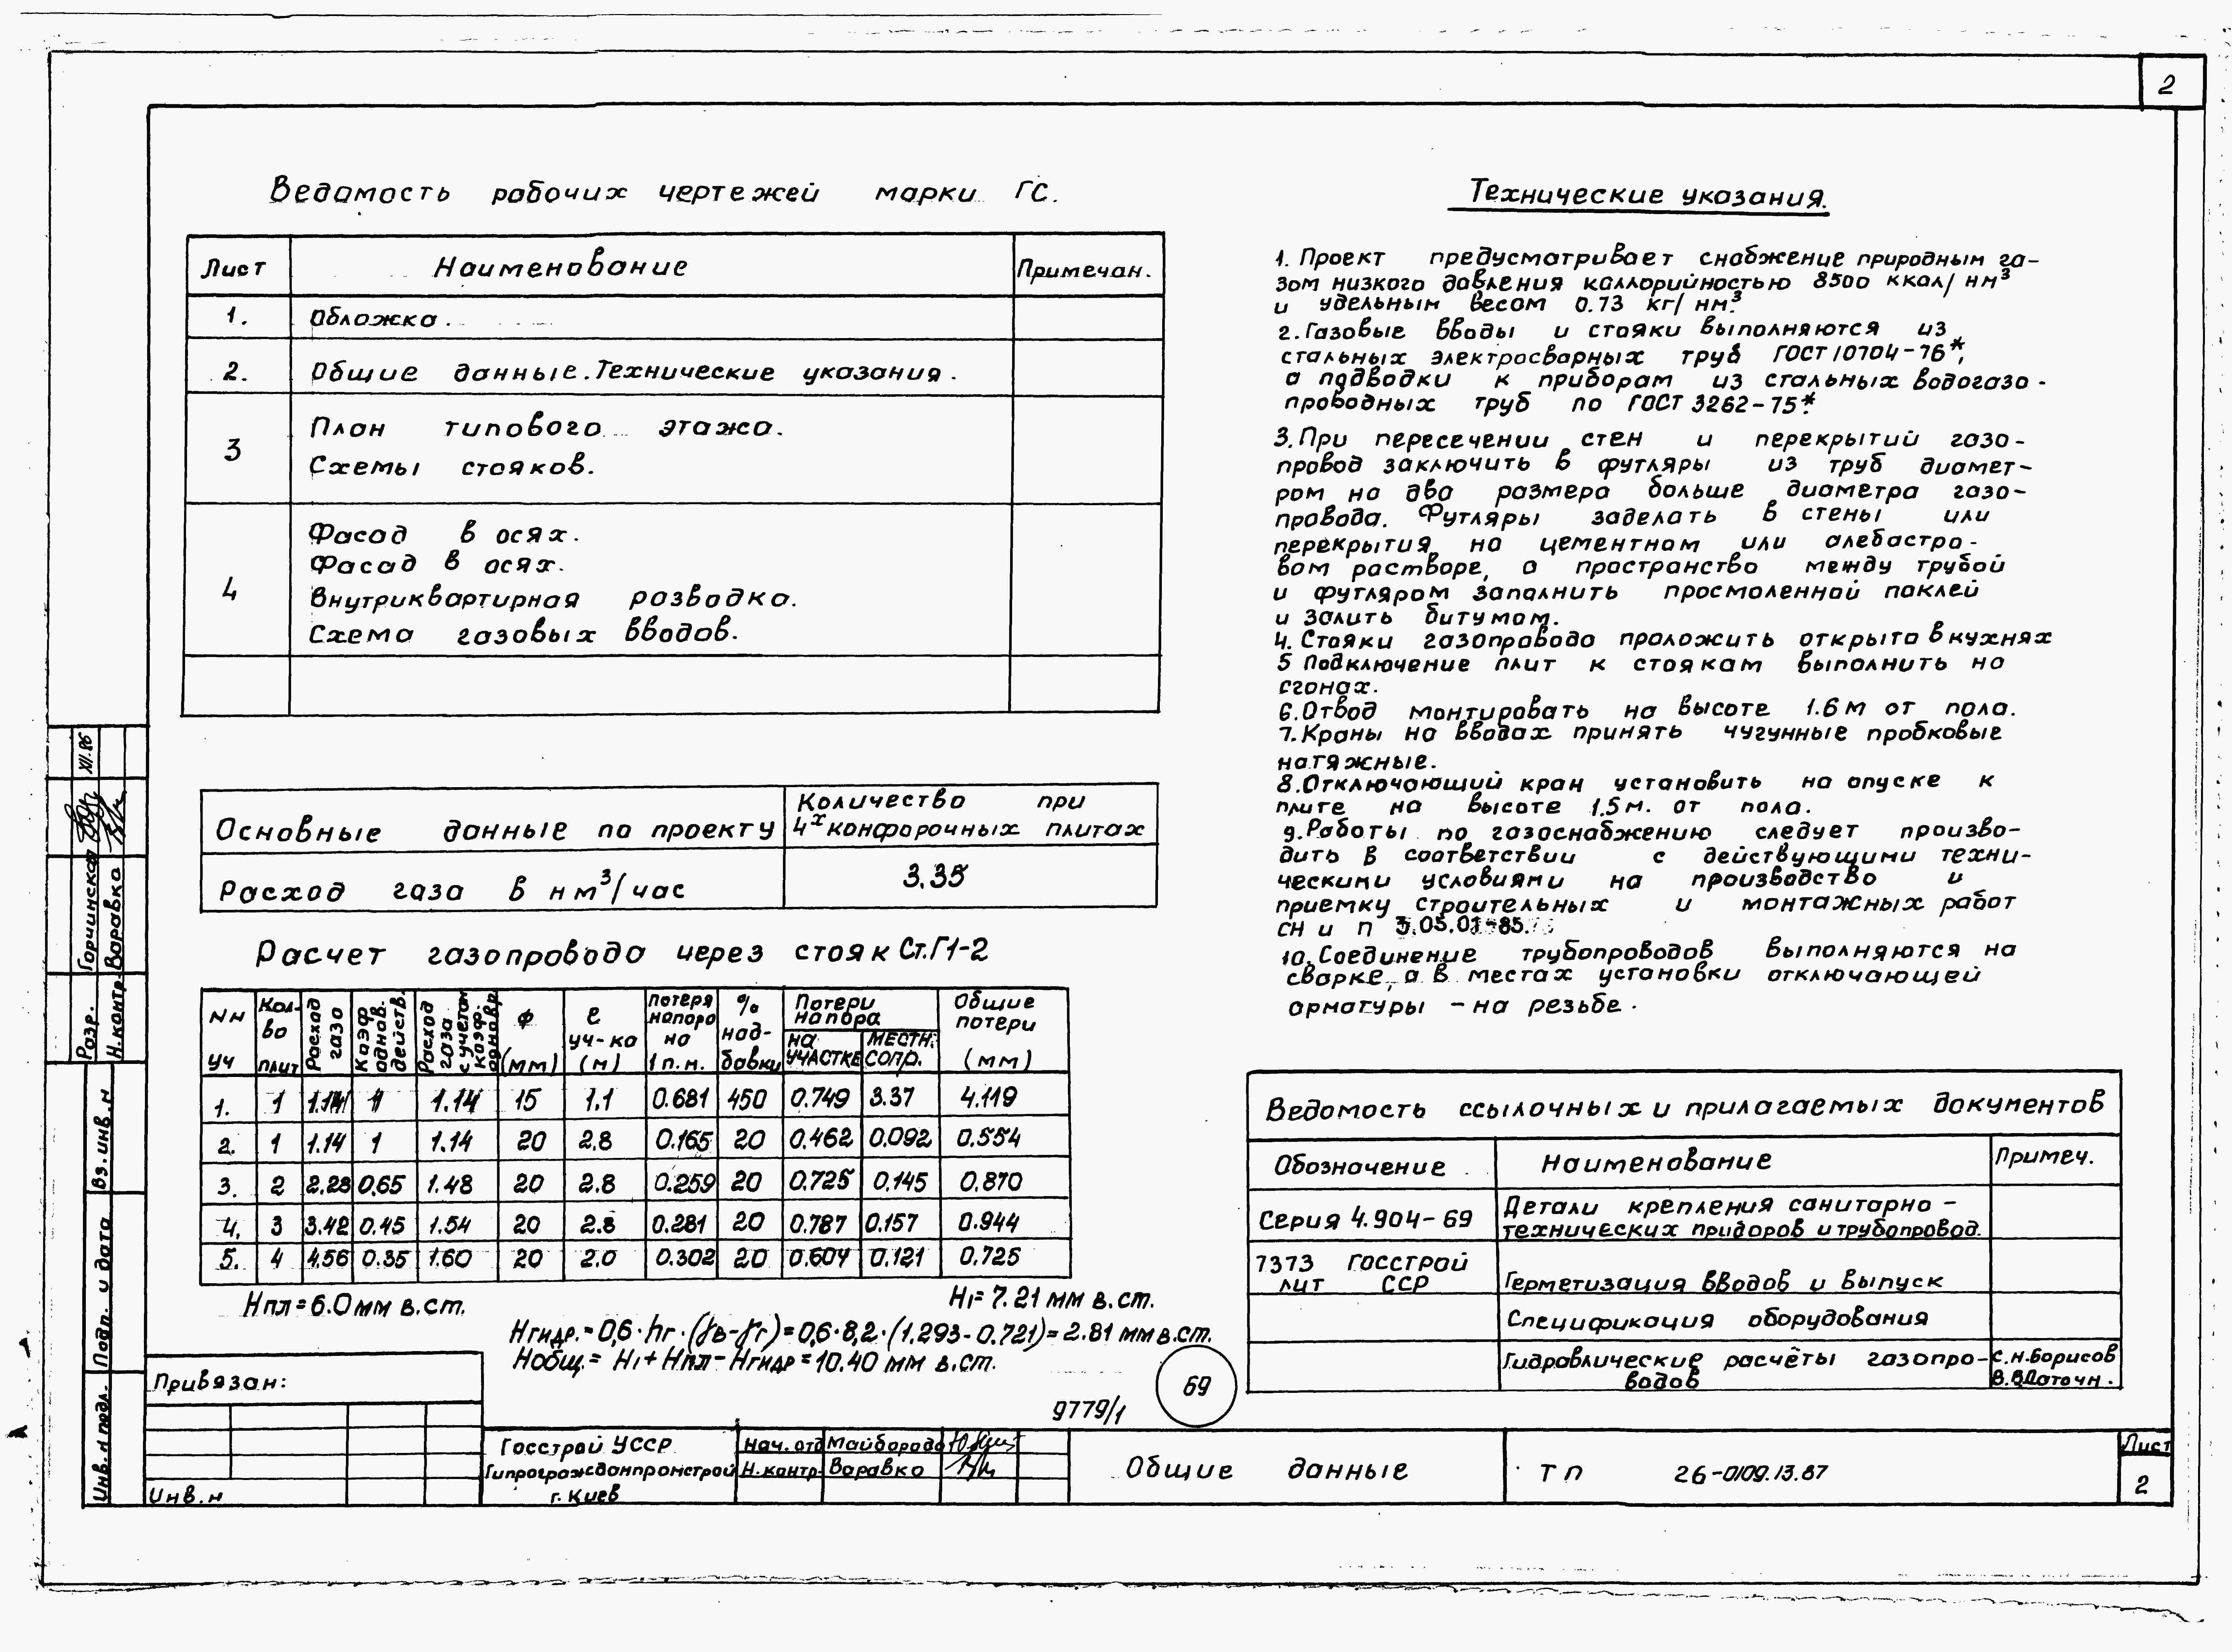 2
Ведомость рабочих чертежей марки ГС.
Лист Наименование Примечан.
1. Обложка.
2. Общие данные. Технические указания.
3 План типового этажа.
Схемы стояков.
4 Фасад в осях.
Фасад в осях.
Внутриквартирная разводка.
Схема газовых вводов.
Основные данные по проекту Количество при
4х конфорочных плитах
Расход газа в нм³/час 3.35
Расчет газопровода через стояк Ст.Г1-2
NN уч Кол-во плит Расход газа Коэф. однов. действ. Расход газа с учетом коэф. одновр. ф (мм) ℓ уч-ка (м) потеря напора на 1 п.м. % над-бавки Потери напора на участке местн. сопр. Общие потери (мм)
1. 1 1.14 1 1.14 15 1.1 0.681 450 0.749 3.37 4.119
2. 1 1.14 1 1.14 20 2.8 0.165 20 0.462 0.092 0.554
3. 2 2.28 0.65 1.48 20 2.8 0.259 20 0.725 0.145 0.870
4. 3 3.42 0.45 1.54 20 2.8 0.281 20 0.787 0.157 0.944
5. 4 4.56 0.35 1.60 20 2.0 0.302 20 0.604 0.121 0.725
Нпл = 6.0 мм в.ст. Н₁ = 7.21 мм в.ст.
Нгидр. = 0,6 · hг · (γв - γг) = 0,6 · 8,2 · (1.293 - 0.721) = 2.81 мм в.ст.
Нобщ. = Н₁ + Нпл - Нгидр = 10.40 мм в.ст.
9779/1
69
Технические указания.
1. Проект предусматривает снабжение природным га-
зом низкого давления каллорийностью 8500 ккал/нм³
и удельным весом 0.73 кг/нм³.
2. Газовые вводы и стояки выполняются из
стальных электросварных труб ГОСТ 10704-76*,
а подводки к приборам из стальных водогазо-
проводных труб по ГОСТ 3262-75*.
3. При пересечении стен и перекрытий газо-
провод заключить в футляры из труб диамет-
ром на два размера больше диаметра газо-
провода. Футляры заделать в стены или
перекрытия на цементном или алебастро-
вом растворе, а пространство между трубой
и футляром заполнить просмоленной паклей
и залить битумом.
4. Стояки газопровода проложить открыто в кухнях
5 Подключение плит к стоякам выполнить на
сгонах.
6. Отвод монтировать на высоте 1.6 м от пола.
7. Краны на вводах принять чугунные пробковые
натяжные.
8. Отключающий кран установить на опуске к
плите на высоте 1.5 м. от пола.
9. Работы по газоснабжению следует произво-
дить в соответствии с действующими техни-
ческими условиями на производство и
приемку строительных и монтажных работ
СН и П 3.05.01-85.
10. Соединение трубопроводов выполняются на
сварке, а в местах установки отключающей
арматуры - на резьбе.
Ведомость ссылочных и прилагаемых документов
Обозначение Наименование Примеч.
Серия 4.904-69 Детали крепления санитарно-
технических придоров и трубопровод.
7373 Госстрой
лит ССР Герметизация вводов и выпуск
Спецификация оборудования
Гидравлические расчёты газопро-
водов С.Н. Борисов
В.В. Даточн.
XII.86
Разр. Горчинская
Н.контр. Варавко
Вз. инв. н
Подп. и дата
Инв. н подл.
Привязан:
Инв. н
Госстрой УССР
Гипрогражданпромстрой
г. Киев
Нач. отд Майборода
Н. контр. Варавко
Общие данные
ТП 26-0109.13.87
Лист
2